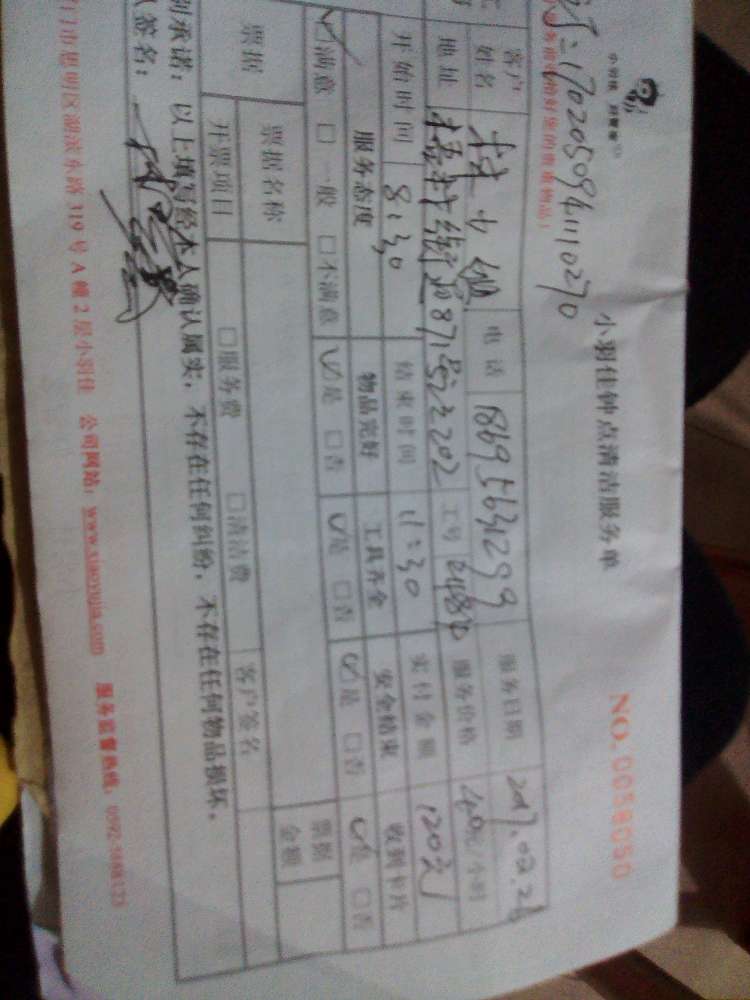 小羽佳 好管家
小羽佳钟点清洁服务单
NO.0058050
170205094110270
客户姓名 电话 服务日期
地址 梧村街道871号之202 工号 服务价格 40元/小时
开始时间 8:30 结束时间 11:30 实付金额 120元
服务态度 物品完好 工具齐全 安全结束 收到卡片
☑满意 □一般 □不满意 ☑是 □否 ☑是 □否 ☑是 □否 ☑是 □否
票据 票据名称 票据金额
开票项目 □服务费 □清洁费 客户签名
别承诺：以上填写经本人确认属实，不存在任何纠纷，不存在任何物品损坏。
签名：
门市思明区湖滨东路319号A幢2层小羽佳 公司网站：www.xiaoyujia.com 服务监督热线：